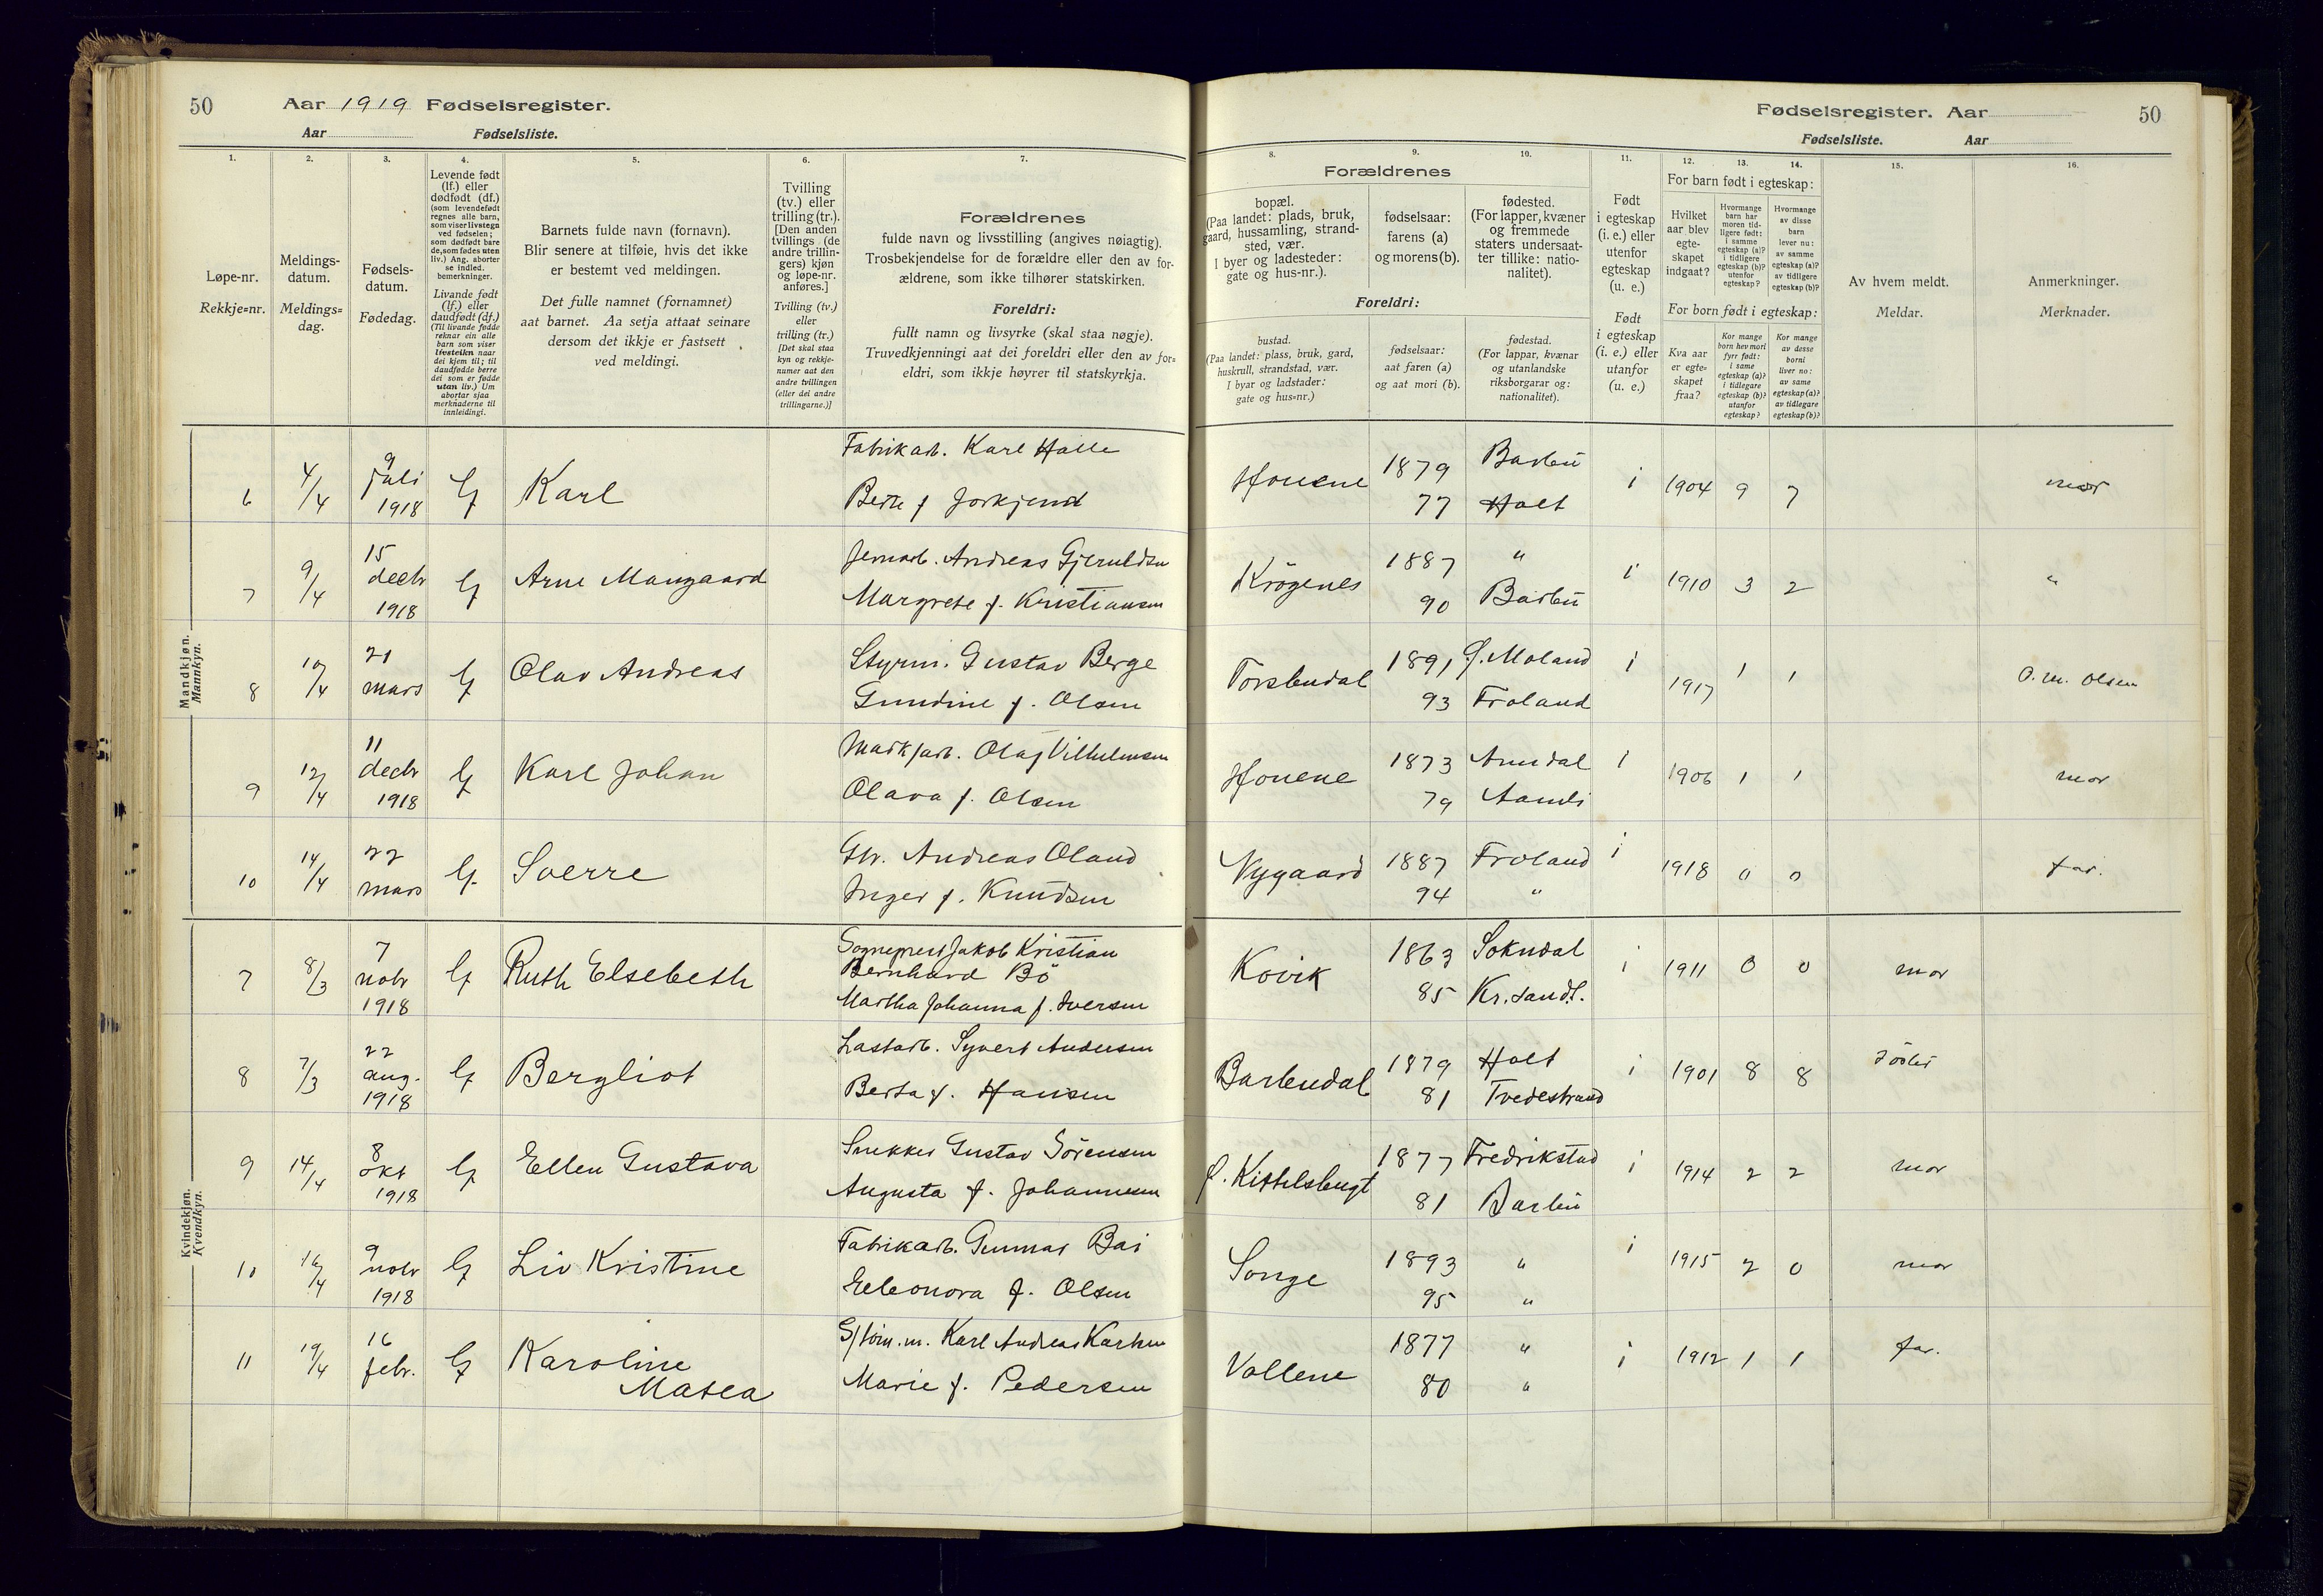 50
Aar 1919 Fødselsregister.
Aar
Fødselsliste.
1.
2.
3.
4.
5.
6.
7.
Løpe-nr.
Rekkje=nr.
Meldings-
datum.
Meldings=
dag.
Fødsels-
datum.
Fødedag.
Levende født
(lf.) eller
dødfødt (df.)
(som levendefødt
regnes alle barn,
som viser livstegn
ved fødselen;
som dødfødt bare
de, som fødes uten
liv.) Ang. aborter
se indled.
bemerkninger.
Livande født
(lf.) eller
daudfødt (df.)
(Til livande fødde
reknar ein alle
barn som viser
livsteikn naar
dei kjem til; til
daudfødde berre
dei som er fødde
utan liv.) Um
abortar sjaa
merknaderne til
innleidingi.
Barnets fulde navn (fornavn).
Blir senere at tilføie, hvis det ikke
er bestemt ved meldingen.
Det fulle namnet (fornamnet)
aat barnet. Aa setja attaat seinare
dersom det ikkje er fastsett
ved meldingi.
Tvilling
(tv.) eller
trilling (tr.).
[Den anden
tvillings (de
andre trillin-
gers) kjøn
og løpe-nr.
anføres.]
Tvilling (tv.)
eller
trilling (tr.)
[Det skal staa
kyn og rekkje-
numer aat den
andre tvillingen
(eller dei andre
trillingarne.)]
Forældrenes
fulde navn og livsstilling (angives nøiagtig).
Trosbekjendelse for de forældre eller den av for-
ældrene, som ikke tilhører statskirken.
Foreldri:
fullt namn og livsyrke (skal staa nøgje).
Truvedkjenningi aat dei foreldri eller den av for=
eldri, som ikkje høyrer til statskyrkja.
Mandkjøn.
Mannkyn.
6 4/4 9 juli 1918 lf Karl
Fabrikarb. Karl Halle
f
7 9/4 15 decbr 1918 lf Arne Maugaard
Jernarb. Andreas Gjeruldsen
Margrete f. Kristiansen
8 10/4 21 mars lf Olav Andreas
Styrm. Gustav Berge
Gundine f. Olsen
9 12/4 11 decbr 1918 lf Karl Johan
Olaf Vilhelmsen
Olava f. Olsen
10 14/4 22 mars lf. Sverre
Andreas Oland
Inger f. Knudsen
Kvindekjøn.
Kvendkyn.
7 8/3 7 nobr 1918 lf Ruth Elsebeth
Sogneprest Jakob Kristian
Bernhard Bö
Martha Johanna f. Iversen
8 7/3 22 aug. 1918 lf Bergliot
Lastarb. Syvert Andersen
Berta f. Hansen
9 14/4 8 okt 1918 lf Ellen Gustava
Snekker Gustav Sörensen
Augusta f. Johannesen
10 16/4 9 nobr 1918 lf Liv Kristine
Fabrikarb. Gunnar Bai
Eleonora f. Olsen
11 19/4 16 febr. lf Karoline
Matea
Karl Andreas
Marie f. Pedersen
Fødselsregister. Aar
50
Fødselsliste.
Aar
8.
9.
10.
11.
12.
13.
14.
15.
16.
Forældrenes
bopæl.
(Paa landet: plads, bruk,
gaard, hussamling, strand-
sted, vær.
I byer og ladesteder:
gate og hus-nr.).
fødselsaar:
farens (a)
og morens (b).
fødested.
(For lapper, kvæner
og fremmede
staters undersaat-
ter tillike: natio-
nalitet).
Foreldri:
bustad.
(Paa landet: plass, bruk, gard,
huskrull, strandstad, vær.
I byar og ladstader:
gate og hus-nr.)
fødselsaar:
aat faren (a)
og aat mori (b).
fødestad.
(For lappar, kvænar
og utanlandske
riksborgarar og:
nationalitet).
Født
i egteskap
(i. e.) eller
utenfor
egteskap
(u. e.)
Født
i egteskap
(i. e.) eller
utanfor
(u. e.)
For barn født i egteskap:
Hvilket
aar blev
egte-
skapet
indgaat?
Hvormange
barn har
moren tid-
ligere født:
i samme
egteskap (a)?
i tidligere
egteskap (b)?
utenfor
egteskap?
Hvormange
av disse
barn
lever nu:
av samme
egteskap (a)?
av tidligere
egteskap (b)?
For born født i egteskap:
Kva aar
er egte=
skapet
fraa?
Kor mange
born hev mori
fyrr født:
i same
egteskap (a)?
i tidlegare
egteskap (b)?
utanfor
egteskap?
Kor mange
av desse
borni
liver no:
av same
egteskap (a)?
av tidlegare
egteskap (b)?
Av hvem meldt.
Meldar.
Anmerkninger.
Merknader.
1879 Barbu i 1904 9 7 mor
77 Holt
Krögenes 1887 " i 1910 3 2 "
90 Barbu
Torsbudal 1891 Ö. Moland i 1917 1 1 O. M. Olsen
93 Froland
1873 Arendal i 1906 1 1 mor
79
Nygaard 1887 Froland i 1918 0 0 far.
94 "
Kovik 1863 Sokndal i 1911 0 0 mor
85 Kr.sand S.
Barbudal 1879 Holt i 1901 8 8
81 Tvedestrand
Kittelsbugt 1877 Fredrikstad i 1914 2 2 mor
81 Barbu
Songe 1893 " i 1915 2 0 mor
95 "
Vollene 1877 " i 1912 1 1 far.
80 "